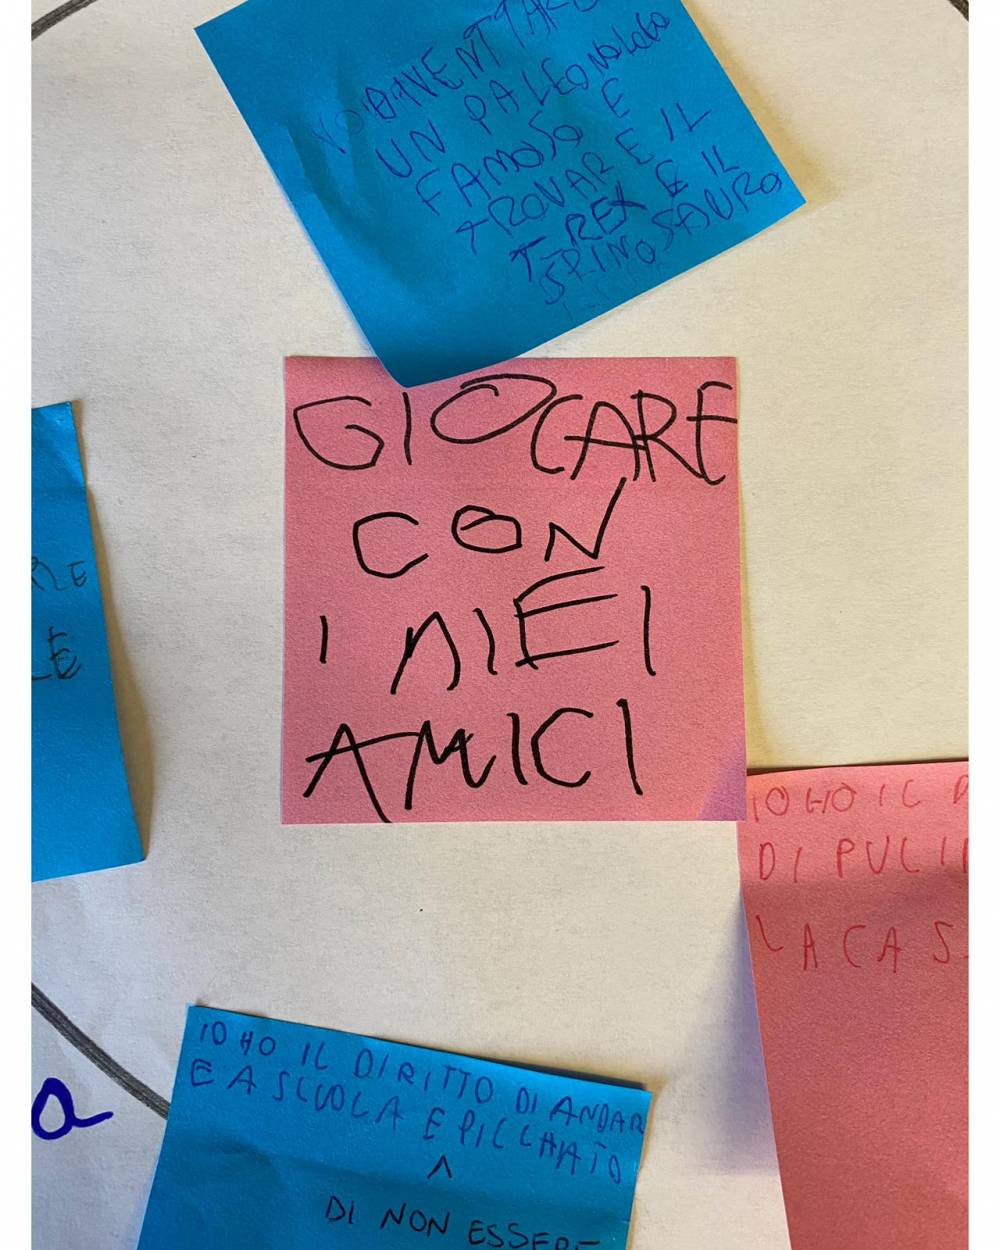 DIVENTARE
UN PALEONOLOGO
FAMOSO E
TROVARE IL
T-REX E IL
SPINOSAURO
GIOCARE
CON
I MIEI
AMICI
RE
LE
IO HO IL D
DI PULIR
LA CAS
IO HO IL DIRITTO DI ANDAR
E A SCUOLA E PICCHIATO
^
DI NON ESSERE
a